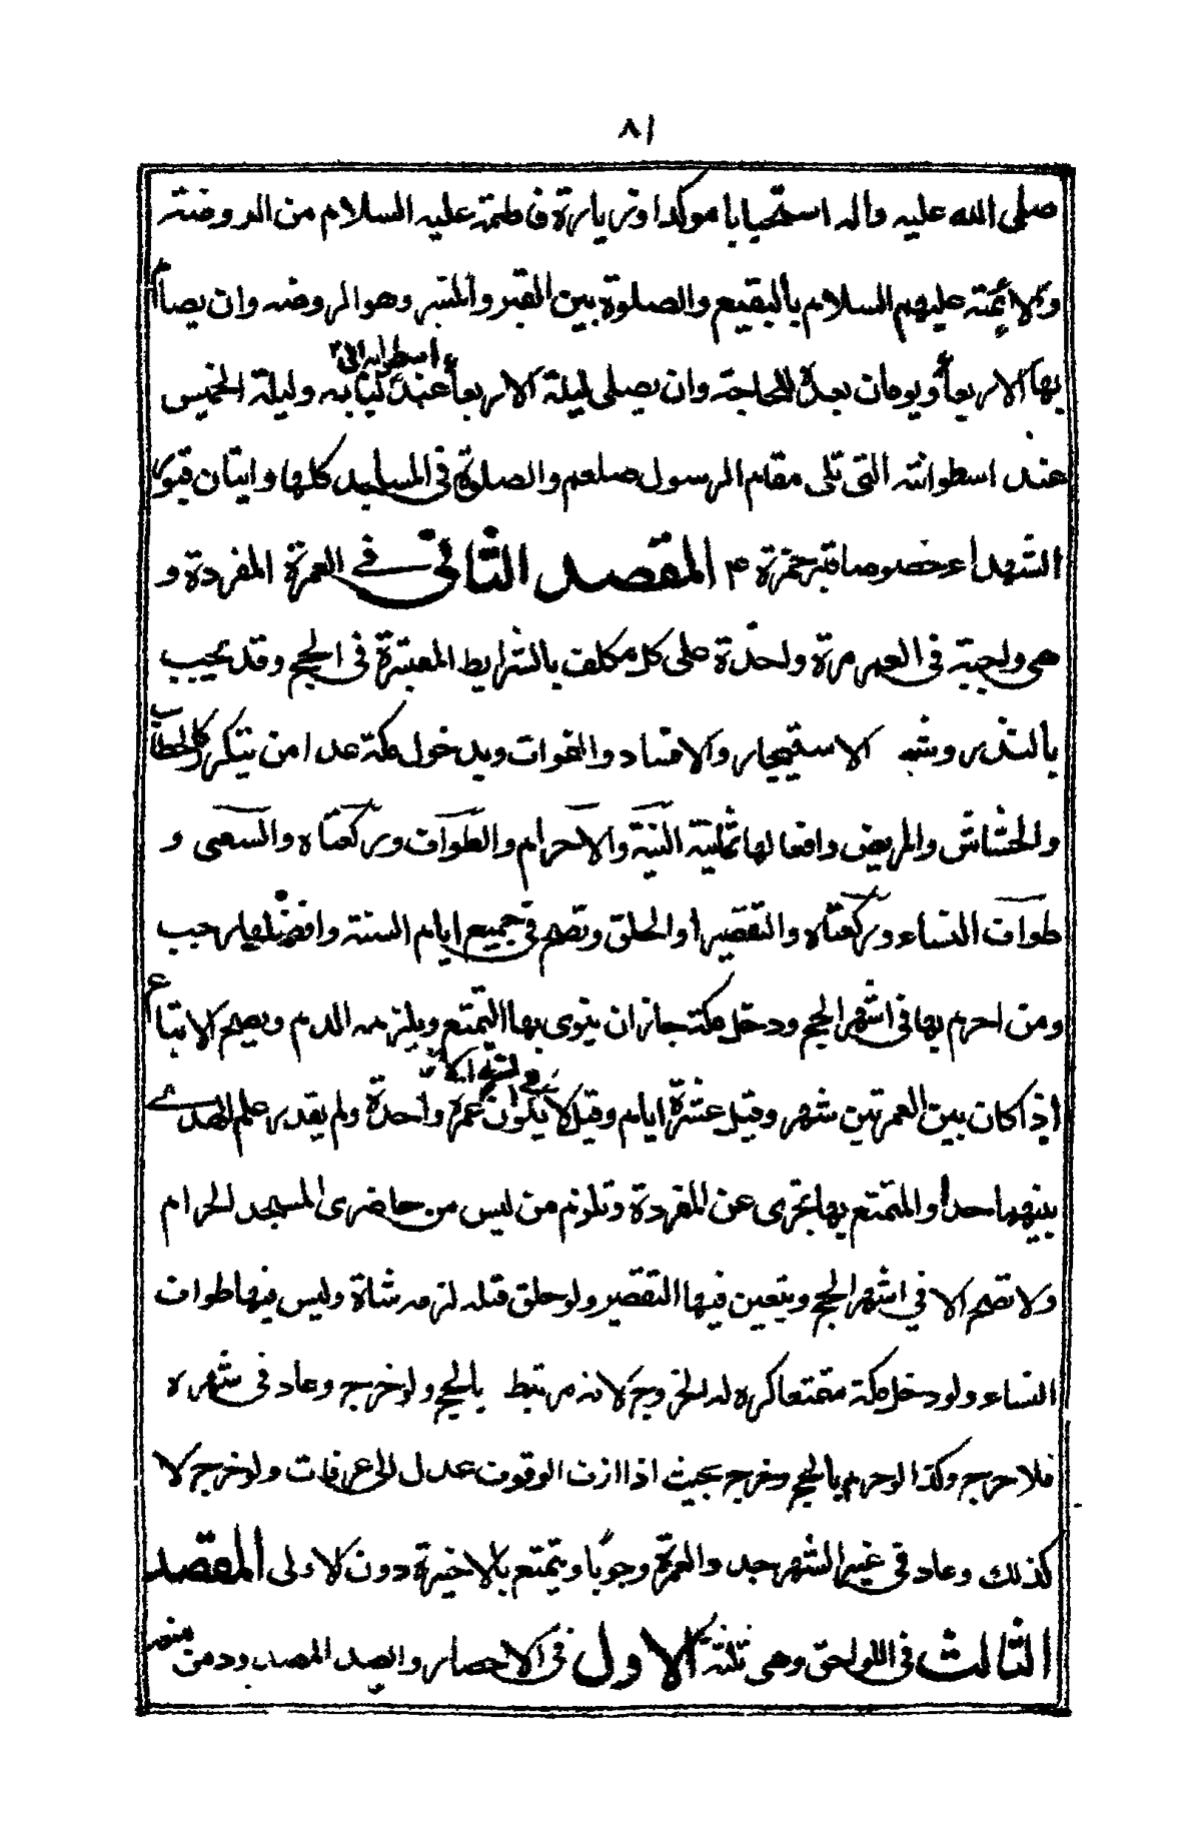 ٨١
صلى الله عليه واله استحبابا موكدا وزيارة فاطمة عليه السلام من الروضة
والائمة عليهم السلام بالبقيع والصلوة بين القبر والمنبر وهو الروضه وان يصام
بها الاربعاء ويومان بعده للحاجة وان يصلى ليلة الاربعاء عند لبابه وليلة الخميس
اسطوانه ابى
عند اسطوانته التى تلى مقام الرسول صلعم والصلوة فى المساجد كلها واتيان قبور
الشهداء خصوصا قبر حمزة ع المقصد الثانى فى العمرة المفردة و
هى واجبة فى العمر مرة واحدة على كل مكلف بالشرايط المعتبرة فى الحج وقد يجب
بالنذر وشبه الاستيجار والافساد والفوات وبدخول مكة عدا من يتكرر كالحطاب
والحشاش والمريض وافعالها ثمانية النية والاحرام والطواف وركعتاه والسعى و
طواف النساء وركعتاه والتقصير او الحلق وتصح فى جميع ايام السنة وافضلها رجب
ومن احرم بها فى اشهر الحج ودخل مكة جاز ان ينوى بها التمتع ويلزمه الدم ويصح الاتباع
اذا كان بين العمرتين شهر وقيل عشرة ايام وقيل لا يكون عمرة واحدة ولم يقدر علم الهدى
بينهما حدا والمتمتع بها تجزى عن المفردة وتلزم من ليس من حاضرى المسجد الحرام
ولا تصح الا فى اشهر الحج ويتعين فيها التقصير ولو حلق قبله لزمه شاة وليس فيها طواف
النساء ولو دخل مكة متمتعا كره له الخروج لانه مرتبط بالحج ولو خرج وعاد فى شهره
فلا حرج وكذا لو احرم بالحج وخرج بحيث اذا ازف الوقوف عدل الى عرفات ولو خرج لا
كذلك وعاد فى غير الشهر جدد العمرة وجوبا ويتمتع بالاخيرة دون الاولى المقصد
الثالث فى اللواحق وهى ثلثة الاول فى الاحصار والصد المصدود من منع